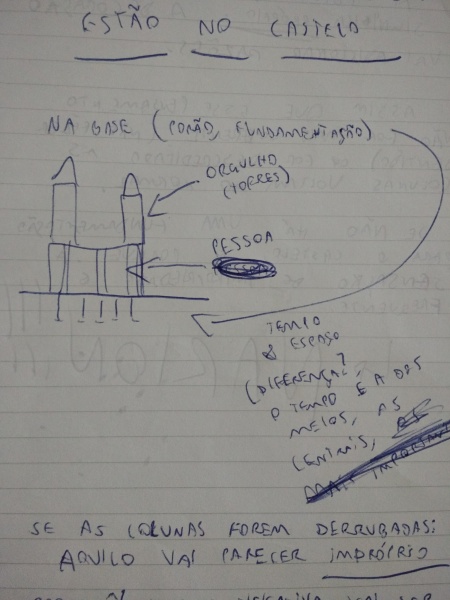 ESTÃO NO CASTELO
NA BASE (PORÃO, FUNDAMENTAÇÃO)
ORGULHO
(TORRES)
PESSOA
TEMPO
& ESPAÇO
(DIFERENÇA?
O TEMPO É A DOS
MEIOS, AS
CENTRAIS,
SE AS COLUNAS FOREM DERRUBADAS:
AQUILO VAI PARECER IMPRÓPRIO